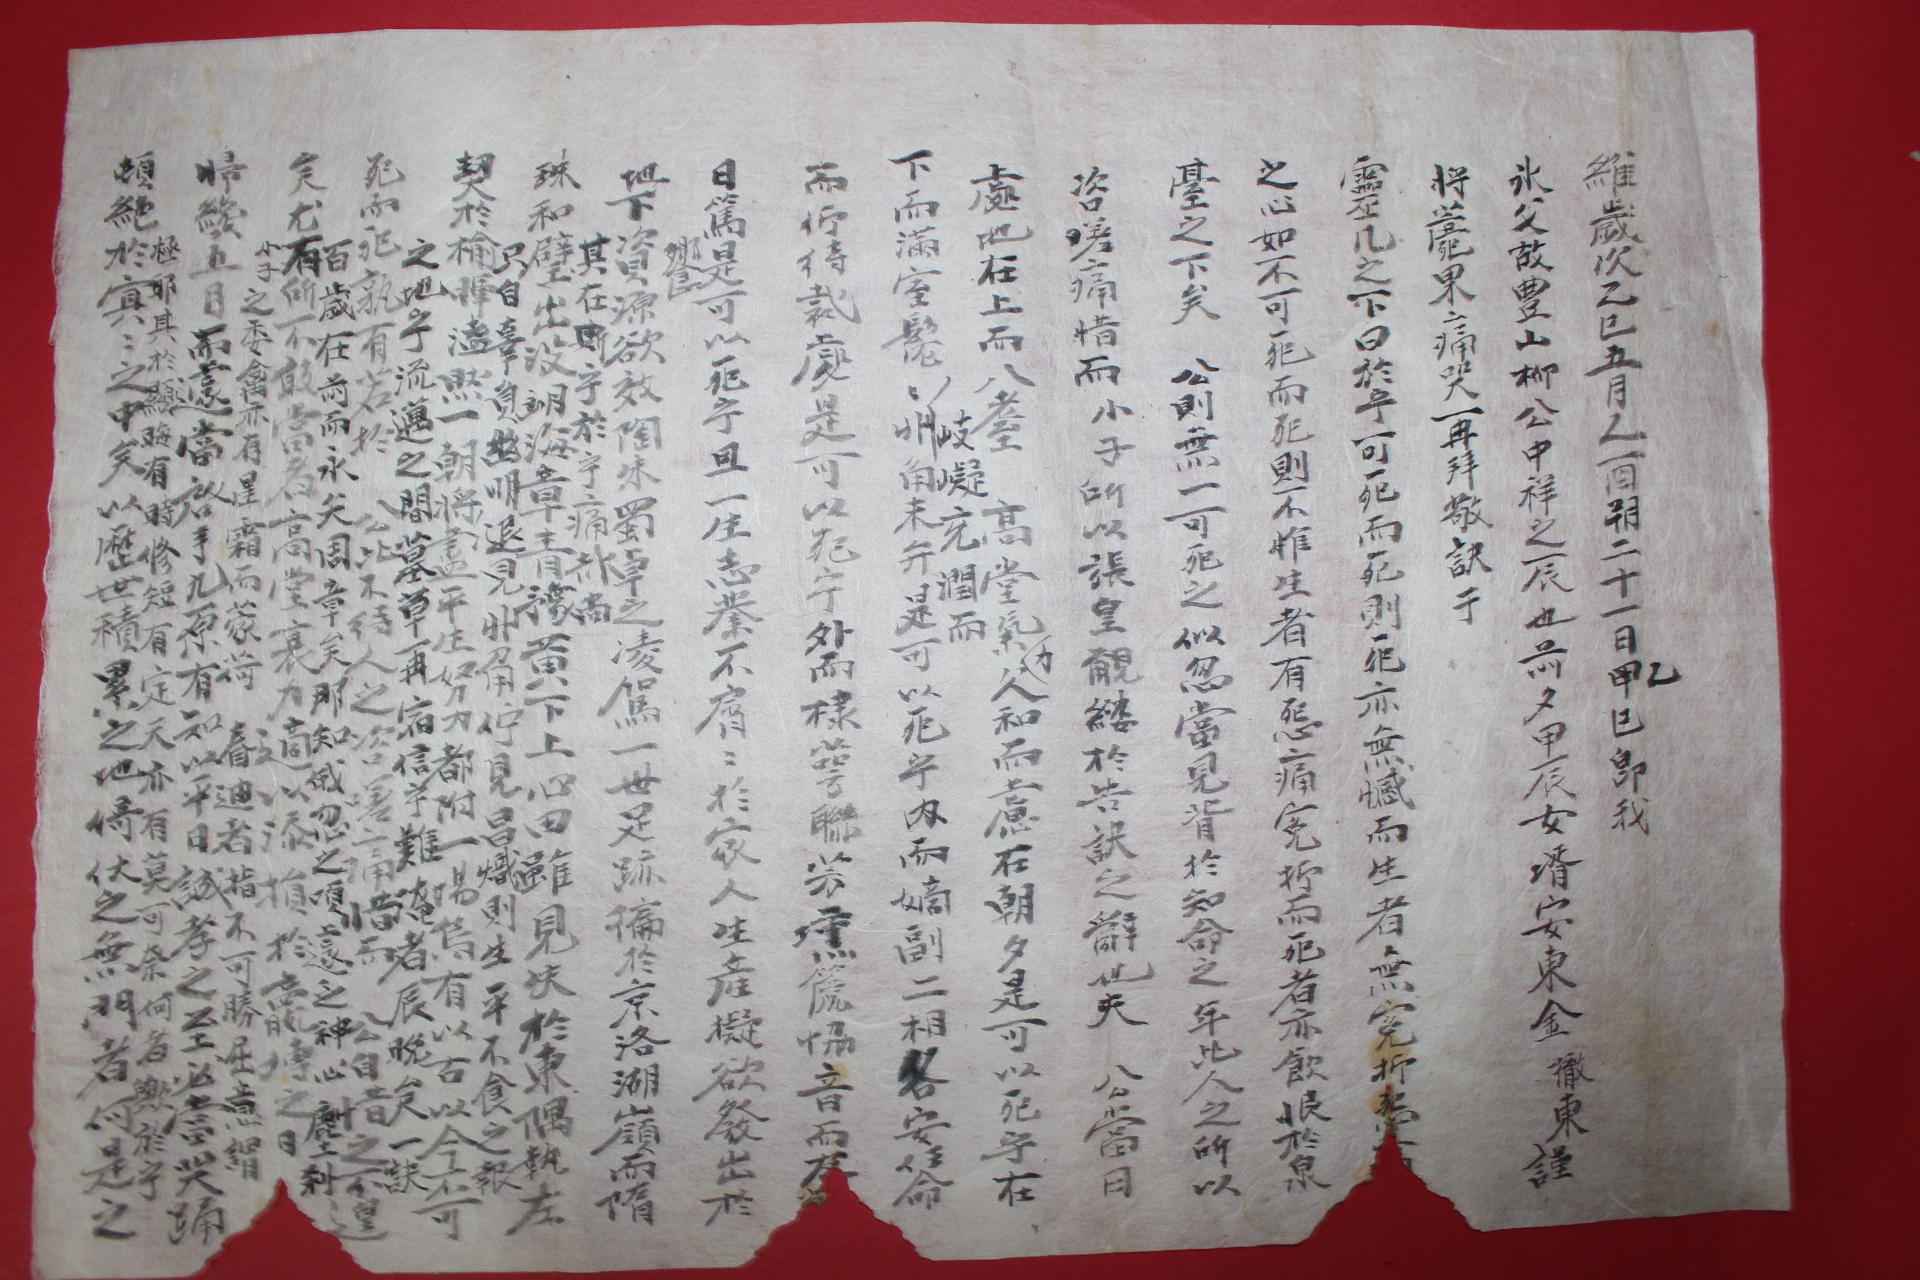 維歲次乙巳五月乙酉朔二十一日甲乙巳卽我
氷父故豊山柳公中祥之辰也前夕甲辰女壻安東金徹東謹
將薄果痛哭再拜敬訣于
靈几之下曰於乎可死而死則死亦無憾而生者無寃抑
之心如不可死而死則不惟生者有怨痛寃抑而死者亦飮恨於泉
臺之下矣 公則無一可死之似忽當見背於知命之年此人之所以
咨嗟痛惜而小子所以張皇覼縷於告訣之辭也夫 公當日
處地在上而八耋高堂氣力人和而憙在朝夕是可以死乎在
岐嶷充潤而
下而滿室髧髧丱角未弁是可以死乎內而嫡副二相各安任命
而佇待裁處是可以死乎外而棣萼聯芳壎篪恊音而
日篤是可以死乎且一生志業不屑屑於家人生産擬欲發出於
地下資源欲效陶朱蜀卓之凌駕一世足跡徧於京洛湖嶺而隋
其在斯乎於乎痛哉尙饗
珠和璧出沒朝海章靑豫黃下上心田雖見失於東隅執左
只自辜負幽明退見丱角佇見昌熾則生平不食之報
契於楡暉溘然一朝將盡平生努力都附一場烏有以古以今可
之地乎流邁之間墓草再宿信乎難諶者辰晩矣一訣
死而死孰有若於公此不待人之咨嗟痛惜而公自昔之不遑
百歲在前而永矣周章矣那知俄忽之頃遽之神心塵刹
矣尤有所不敢當者高堂衰力適以添損於之日
小子之委禽亦有星霜而蒙荷眷迪者指不可勝屈意謂
歸纔五日而遽當啓手九原有知以平日誠孝之至必當哭踊
極耶其於顯晦有時修短有定天亦有莫可奈何者歟於乎
頓絶於冥冥之中矣以歷世積累之地倚伏之無門者何是之